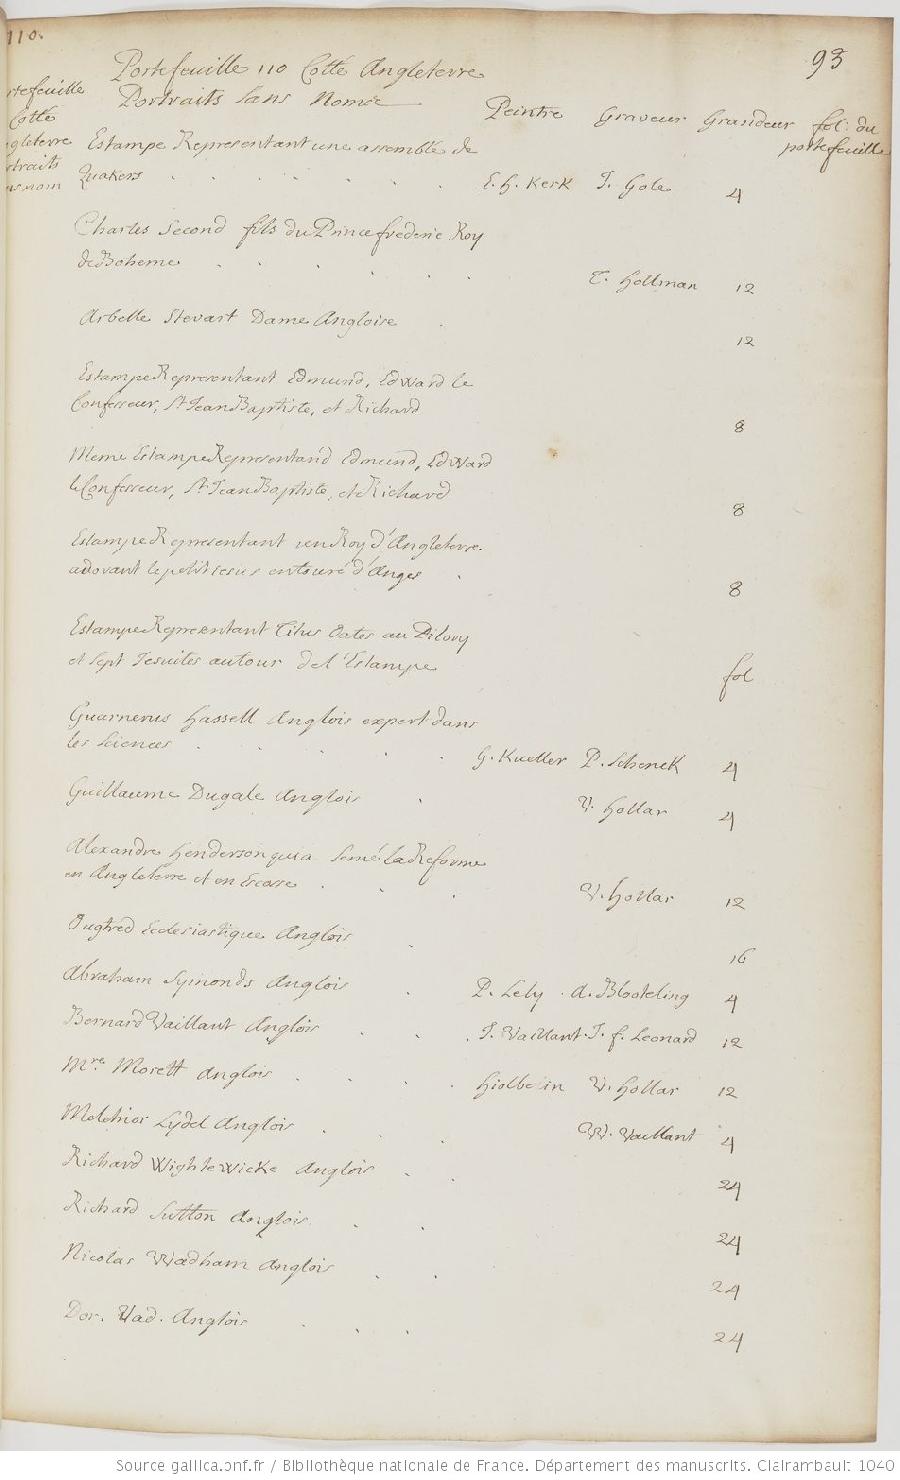 110.
93
Portefeuille 110 Cotté Angleterre
Portraits sans Nomée
Peintre Graveur Grandeur fol: du portefeuille
rtefeuille
Cotté
gleterre
rtraits
nom
Estampe Representant une assemblé de
Quakers E. h. Kerk J. Gole 4
Charles Second fils du Prince frederic Roy
de Boheme T. hollman 12
Arbelle Stevart Dame Angloise 12
Estampe Representant Edmund, Edward le
Confesseur, St Jean Baptiste, et Richard 8
Meme Estampe Representand Edmund, Edward
le Confesseur, St Jean Baptiste, et Richard 8
Estampe Representant un Roy d'Angleterre
adorant le petit Jesus entouré d'Anges 8
Estampe Representant Titus Oates au Pilory
et sept Jesuites autour de l'Estampe fol
Guarnerus hassell Anglois expert dans
les Sciences G. Kueller P. Schenck 4
Guillaume Dugale Anglois V. hollar 4
Alexandre henderson qui a semé la Reforme
en Angleterre et en Ecosse V. hollar 12
Ougtred Eclesiastique Anglois 16
Abraham Symonds Anglois P. Lely A. Blooteling 4
Bernard Vaillant Anglois J. Vaillant J. f. Leonard 12
Mre. Morett Anglois holbein W. hollar 12
Melchior Lydel Anglois W. Vaillant 4
Richard Wightewicke Anglois 24
Richard Sutton Anglois 24
Nicolas Wadham Anglois 24
Dor. Uad. Anglois 24
Source gallica.bnf.fr / Bibliothèque nationale de France. Département des manuscrits. Clairambault 1040